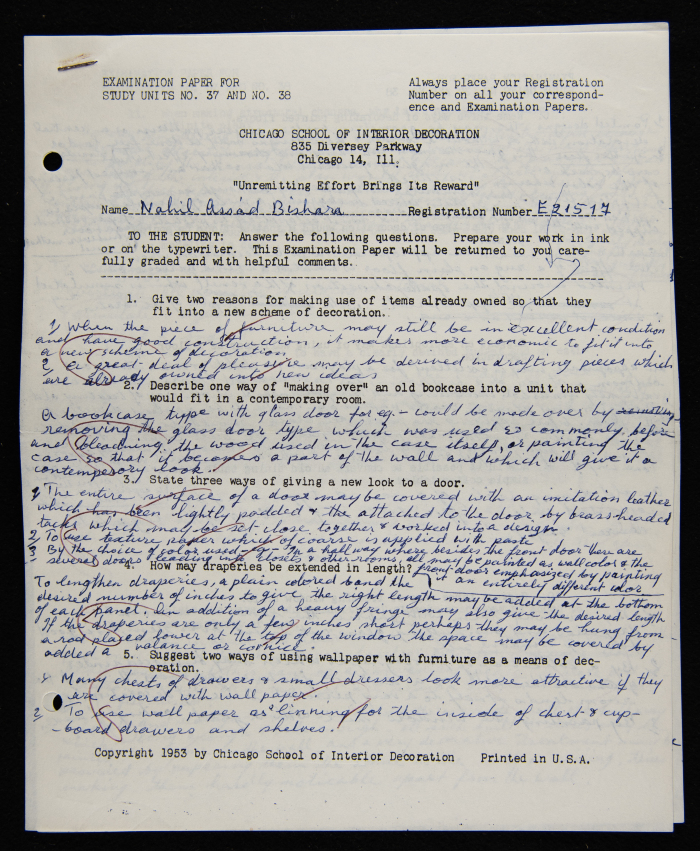 EXAMINATION PAPER FOR
STUDY UNITS NO. 37 AND NO. 38
Always place your Registration
Number on all your correspond-
ence and Examination Papers.
CHICAGO SCHOOL OF INTERIOR DECORATION
835 Diversey Parkway
Chicago 14, Ill.
"Unremitting Effort Brings Its Reward"
Name Nahil Assad Bishara Registration Number E21517
TO THE STUDENT: Answer the following questions. Prepare your work in ink
or on the typewriter. This Examination Paper will be returned to you care-
fully graded and with helpful comments.
1. Give two reasons for making use of items already owned so that they
fit into a new scheme of decoration.
1) When the piece of furniture may still be in excellent condition
and have good construction, it makes more economic to fit it into
a new scheme of decoration
2 A great deal of pleasure may be derived in drafting pieces which
are already owned into new ideas
2. Describe one way of "making over" an old bookcase into a unit that
would fit in a contemporary room.
A bookcase type with glass door for eg- could be made over by
removing the glass door type which was used so commonly before
and bleaching the wood used in the case itself, or painting the
case so that it becomes a part of the wall and which will give it a
contemporary look.
3. State three ways of giving a new look to a door.
1 The entire surface of a door may be covered with an imitation leather
which has been lightly padded & the attached to the door by brass-headed
tacks which may be set close together & worked into a design.
2 To use texture paper which of coarse is applied with paste
3 By the choice of color used - eg. In a hall way where besides the front door there are
several doors leading into closets & other rooms all may be painted as wall color & the
front door emphasized by painting
it an entirely different color
4. How may draperies be extended in length?
To lengthen draperies, a plain colored band the
desired number of inches to give the right length may be added at the bottom
of each panel. In addition of a heavy fringe may also give the desired length
If the draperies are only a few inches short perhaps they may be hung from
a rod placed lower at the top of the window the space may be covered by
added a valance or cornice.
5. Suggest two ways of using wallpaper with furniture as a means of dec-
oration.
Many chests of drawers & small dressers look more attractive if they
are covered with wall paper.
2 To use wall paper as linning for the inside of chest & cup-
-board drawers and shelves.
Copyright 1953 by Chicago School of Interior Decoration Printed in U.S.A.